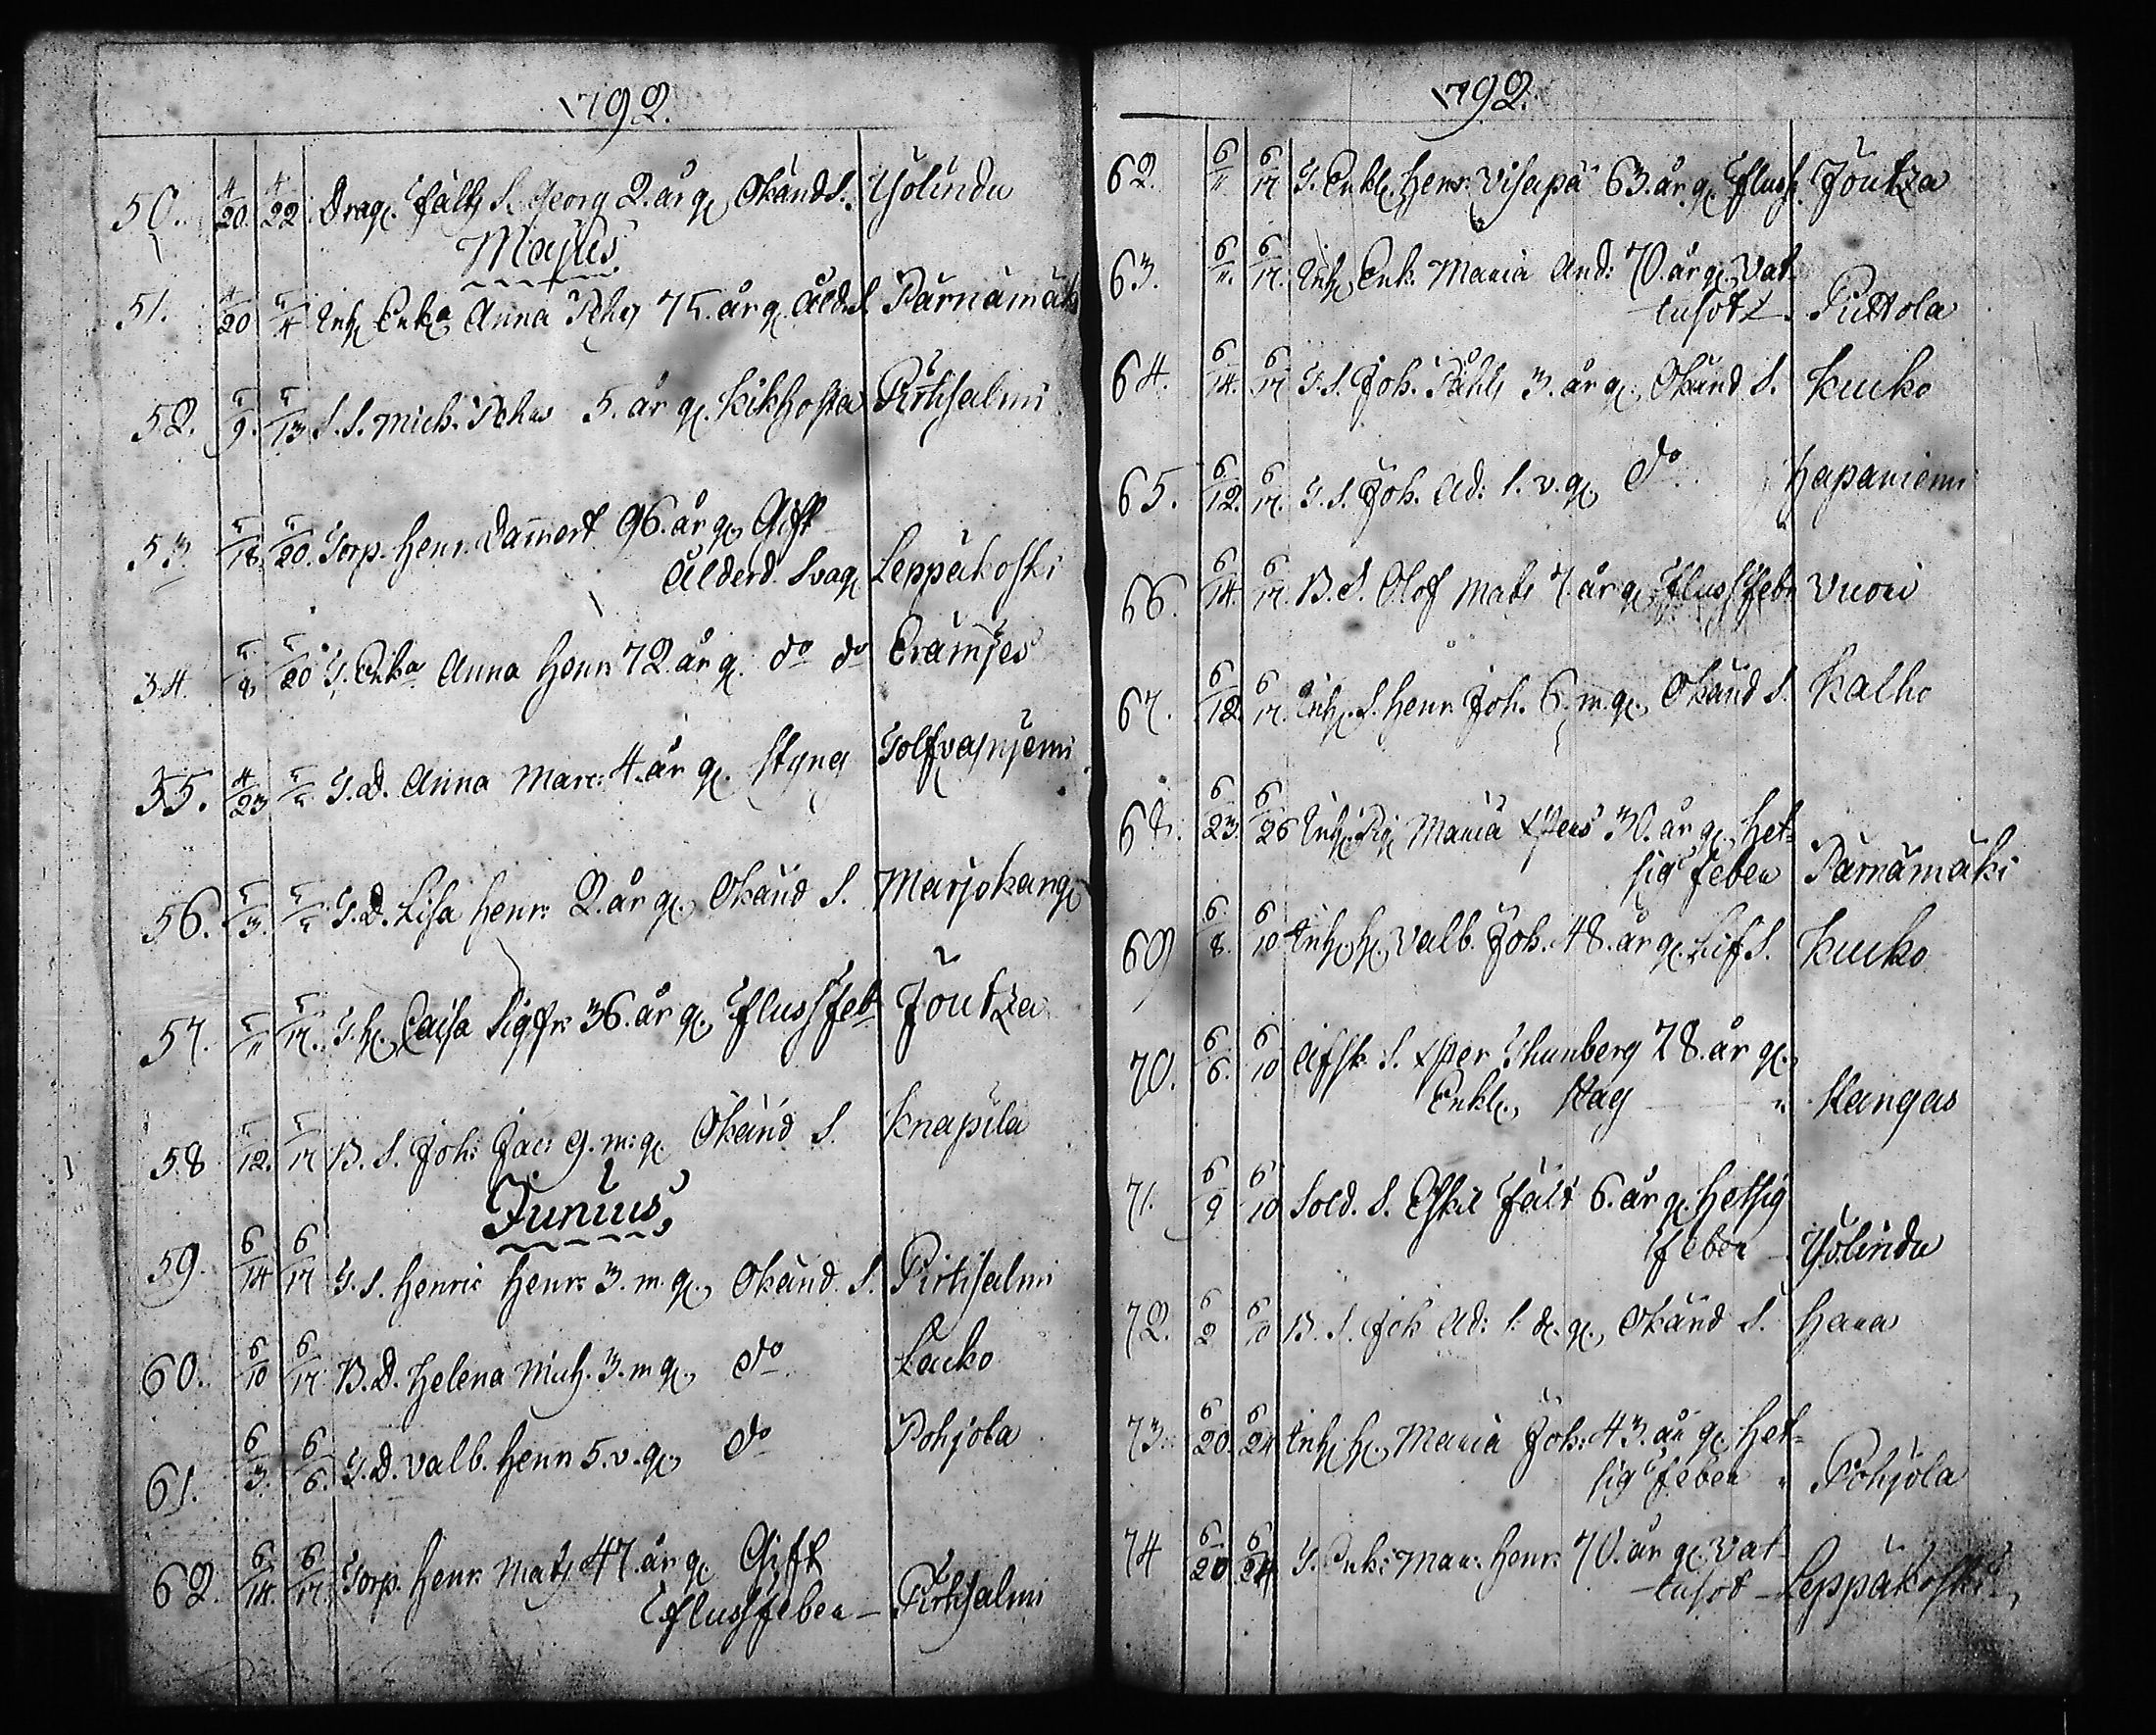 1792.
50. 4/20. 4/22. Drag. Fält S. Georg 2. år g. Okänd S. Yölindu
Majus
51. 4/20 5/4 Inh. Enka Anna Tehs 75. år g. Åld. S. Pärnämäki
52. 5/9. 5/13 S. S. Mich. Tehs 5. år g. Kikhosta Pirttisalmi
53. 5/18. 5/20. Torp. Henr. Dammert 96. år g. Gift
Ålderd. Svag. Leppäkoski
54. 5/8 5/20 T. Enka Anna Henr. 72. år g. do do Erämjes
55. 4/23 T. D. Anna Marc: 4. år g. Styng Tolfvasnjemi
56. 5/3. T. D. Lisa Henr: 2. år g. Okänd S. Marjokang
57. 5/11 5/17. T. H. Caisa Sigfr: 36. år g. Flussfeb Joutza
58 5/12. 5/17 B. S. Joh: Jac: 9. m: g. Okänd S. Knapila
Junius
59. 6/14 6/17 T. S. Henric Henr: 3. m. g. Okänd. S. Pirttisalmi
60. 6/10 6/17 B. D. Helena Mich. 3. m g. do Lauko
61. 6/3. 6/6. T. D. Valb. Henr. 5. v. g. do Pohjola
62. 6/14. 6/17. Torp. Henr. Mats 47. år g. Gift
Flussfeber Pirttisalmi
1792.
62. 6/11 6/17 T. Enkl. Henr: Visapä 63. år g. Flussf. Joutza
63. 6/11. 6/17. Inh. Enk. Maria And: 70. år g. Vat-
tusot Puttola
64. 6/14. 6/17 T. S. Joh. Påhls 3. år g. Okänd S. Kuko
65. 6/12. 6/17. T. S. Joh. Ad: 1. v. g. do Hapaniemi
66. 6/14. 6/17. B. S. Olof Mats 7. år g. Flussfeb Vuori
67. 6/12. 6/17. Inh. S. Henr. Joh. 6. m. g. Okänd S. Kalho
68. 6/23. 6/26 Inh. Pig. Maria Xters 30. år g. Het-
sig feber Pärnämäki
69 6/8. 6/10 Inh. H. Valb. Joh. 48. år g. Lifs. Kuko
70. 6/6. 6/10 Afsk. S. Xster Thunberg 78. år g.
Enkl. Håg Kangas
71. 6/9 6/10 Sold. S. Eskil Fält 6. år g. Hetsig
feber Yölindu
72. 6/2 6/10 B. S. Joh Ad: 1. d. g. Okänd S. Hara
73. 6/20. 6/24 Inh. H. Maria Joh: 43. år g. Het-
sig feber Pohjola
74 6/20 6/24 T. Enk: Mar: Henr: 70. år g. Vat-
tusot Leppäkoski